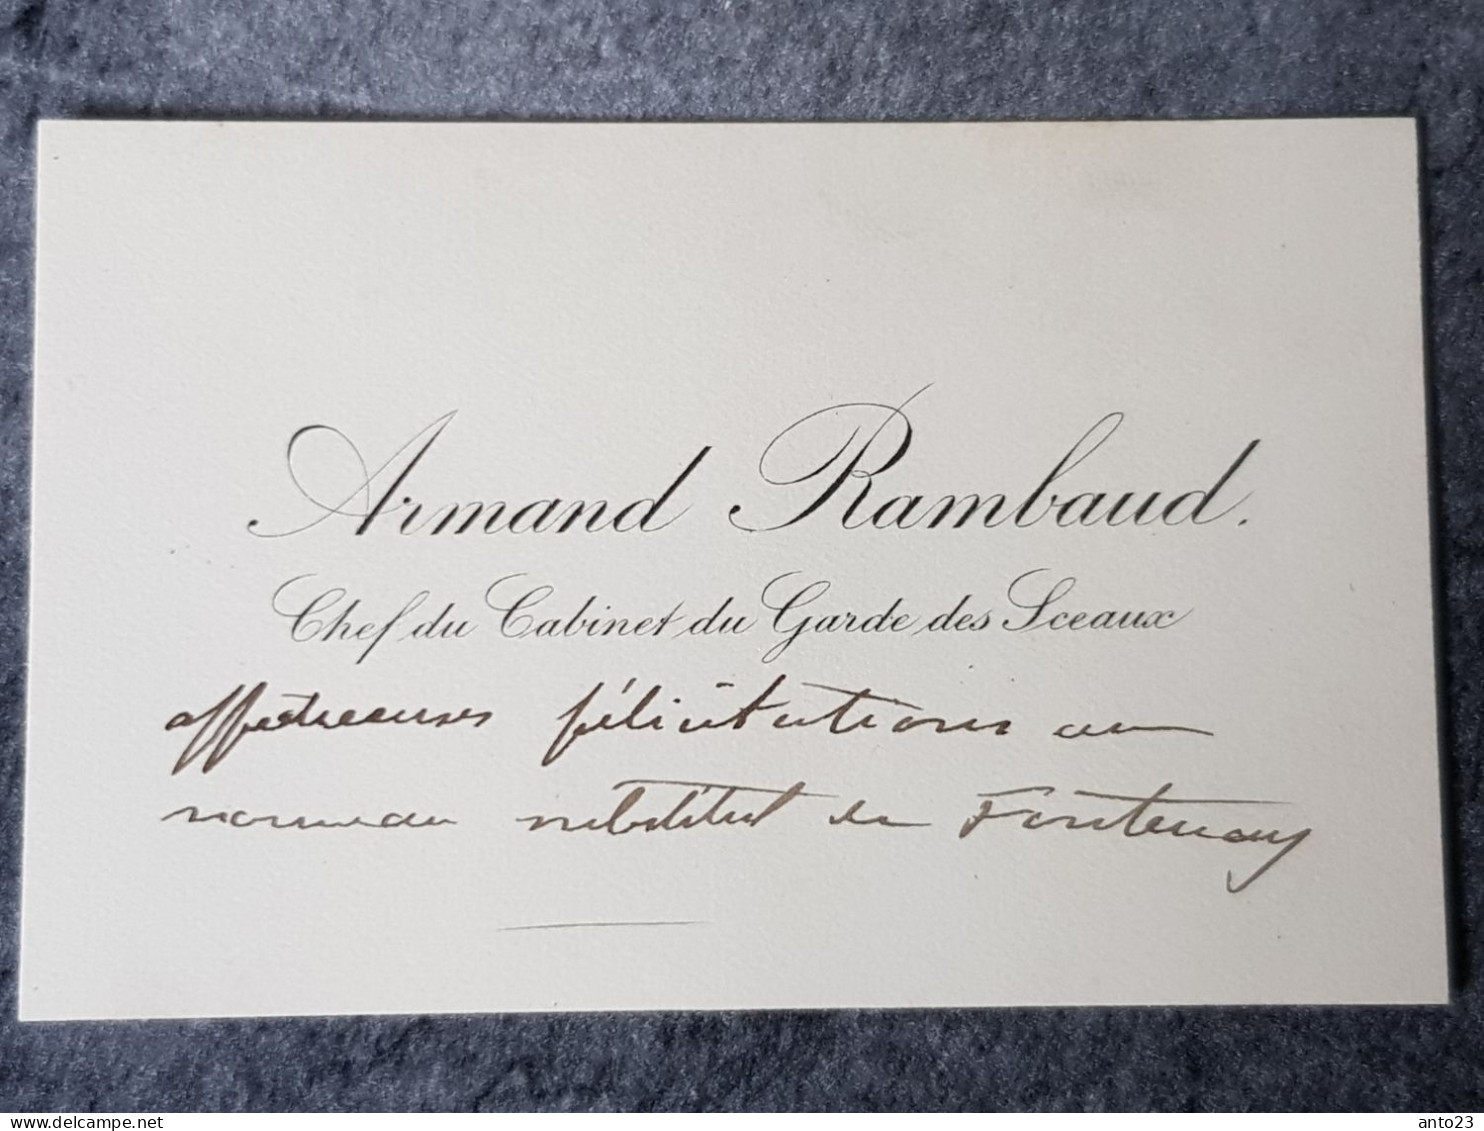 Armand Rambaud.
Chef du Cabinet du Garde des Sceaux
affectueuses félicitations au
nouveau substitut de Fontenay
delcampe.net
anto23